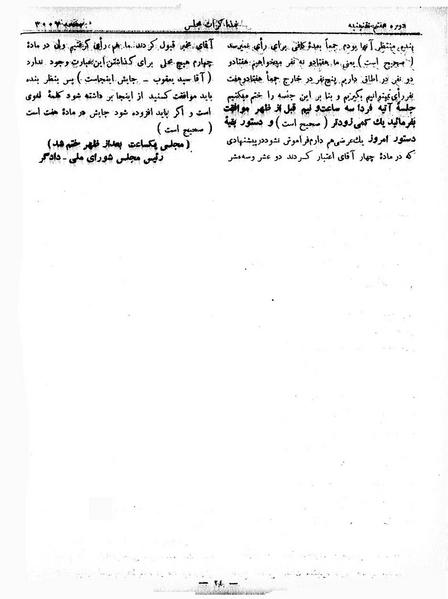 دوره هفتم تقنینیه
مذاکرات مجلس
صفحه ۳۰۰۲
بنده منتظر آنها بودم، جمعاً بعدهٔ کافی برای رأی نمیرسد
(– صحیح است) یعنی ما هفتادو نه نفر میخواهیم هفتادو
دو نفر در اطاق داریم پنج نفر در خارج جمعاً هفتادو هفت
نفر رأی نمیتوانیم بگیریم و بنا بر این جلسه را ختم میکنیم
جلسهٔ آتیه فردا سه ساعت و نیم قبل از ظهر موافقت
بفرمائید یك کمی زودتر (صحیح است) و دستور بقیهٔ
دستور امروز یك عرضی هم دارم فراموش نشود در پیشنهادی
که در مادهٔ چهار آقای اعتبار کردند دو عشر وسه عشر
آقای مخبر قبول کردند ما هم رأی گرفتیم ولی در مادهٔ
چهارم هیچ محلی برای گذاشتن این عبارت وجود ندارد
(آقا سید یعقوب – جایش اینجاست) پس بنظر بنده
باید موافقت کنید از اینجا بر داشته شود کلمهٔ لغوی
است و اگر باید افزوده شود جایش در مادهٔ هفت است
(صحیح است)
(مجلس یکساعت بعد از ظهر ختم شد)
رئیس مجلس شورای ملی – دادگر
— ۲۴ —